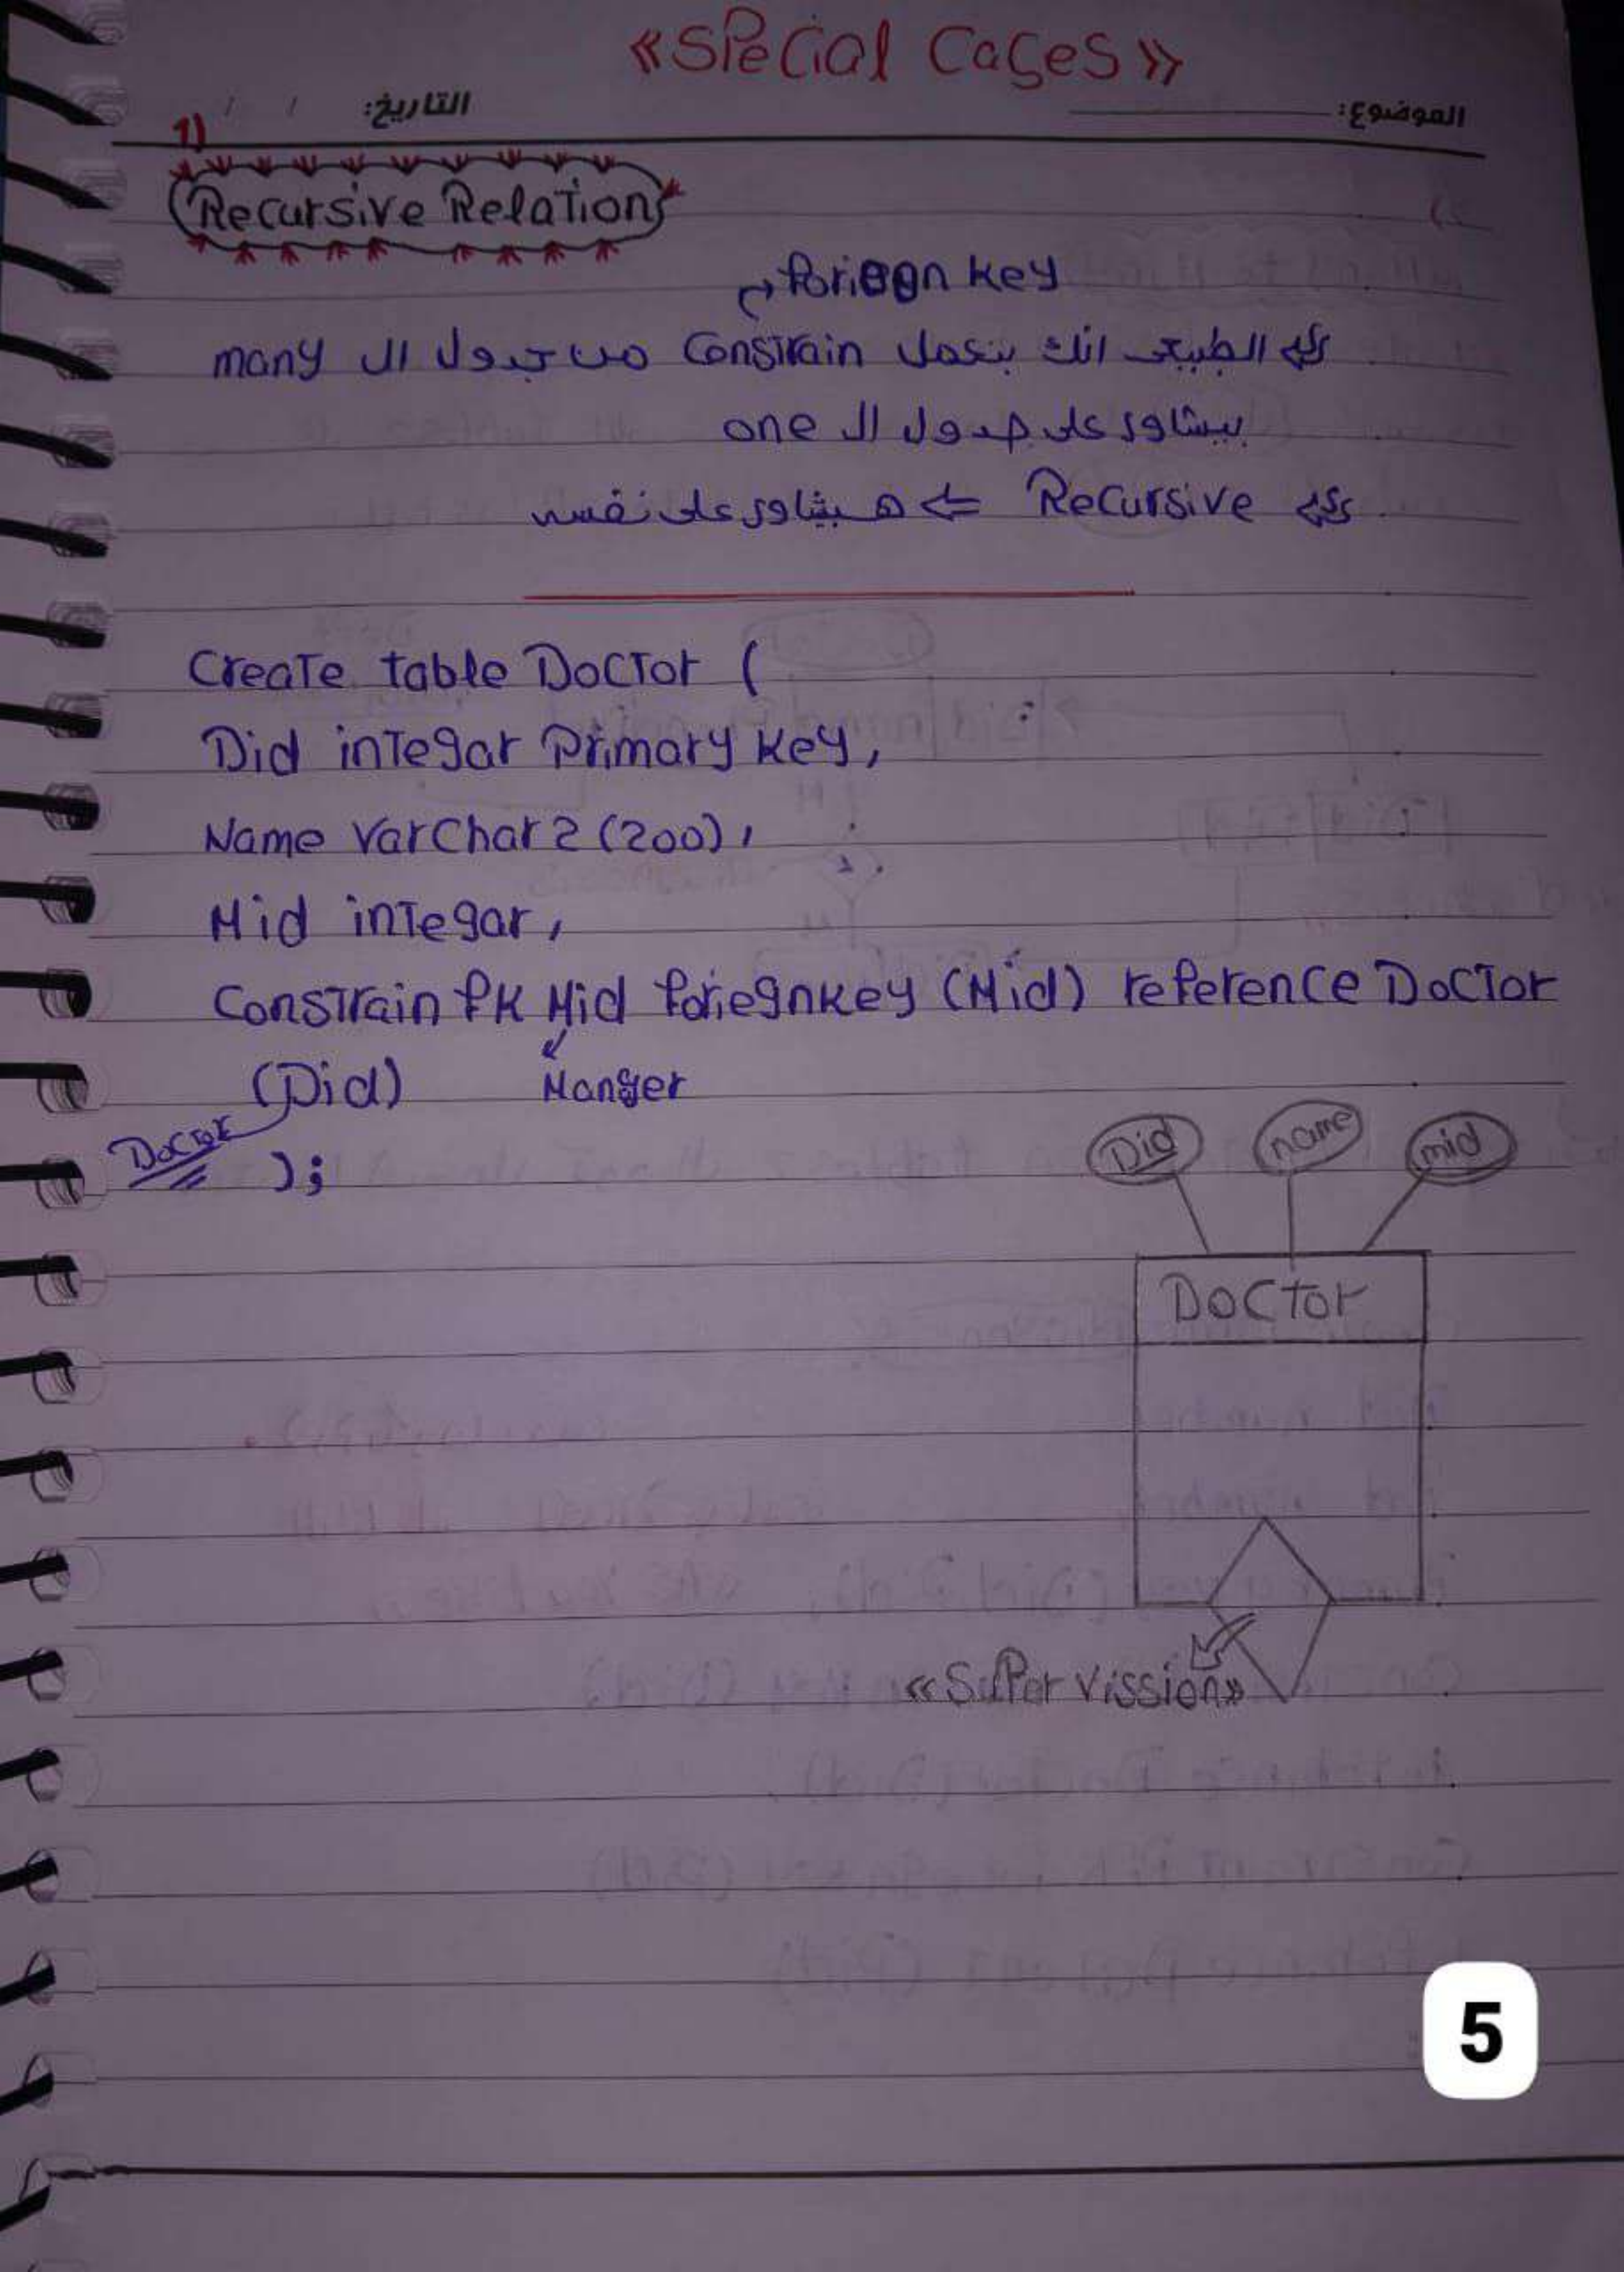 «Special Cases»
التاريخ: / /
الموضوع:
1)
Recursive Relation
foriegn key
الطبيعى انك بتعمل Constrain من جدول ال many
بيشاور على جدول ال one
Recursive ⇐ هيشاور على نفسه
Create table Doctor (
Did integar Primary key,
Name Varchar2 (200),
Mid integar,
Constrain fk Mid foriegnkey (Mid) reference Doctor
(Did)
Manger
Doctor
);
Did
name
mid
Doctor
«Super vission»
5